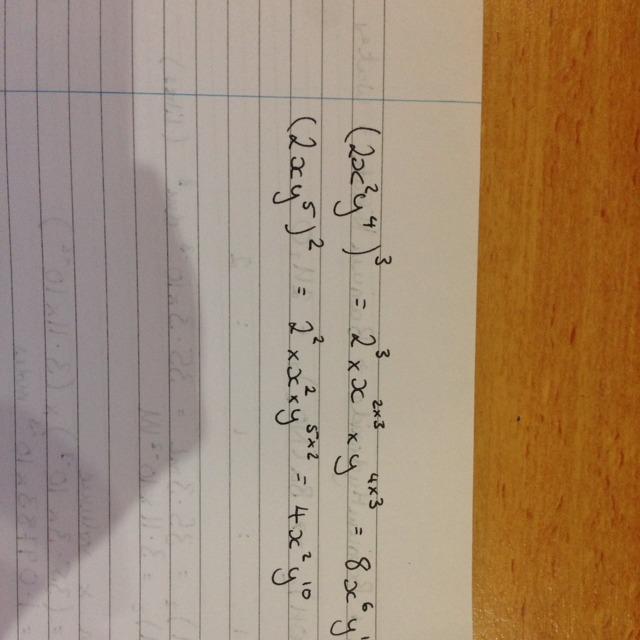 (2x²y⁴)³ = 2³ × x²ˣ³ × y⁴ˣ³ = 8x⁶y¹
(2xy⁵)² = 2² × x² × y⁵ˣ² = 4x²y¹⁰